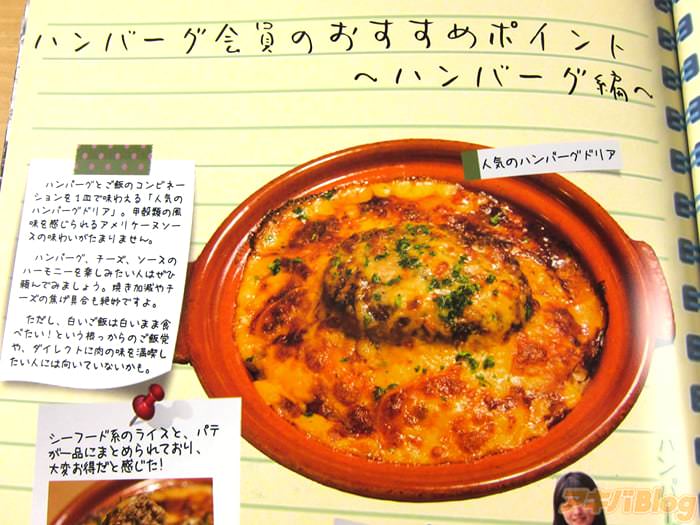 ハンバーグ会員のおすすめポイント
～ハンバーグ編～
人気のハンバーグドリア
ハンバーグとご飯のコンビネー
ションを1皿で味わえる「人気の
ハンバーグドリア」。甲殻類の風
味を感じられるアメリケーヌソー
スの味わいがたまりません。
ハンバーグ、チーズ、ソースの
ハーモニーを楽しみたい人はぜひ
頼んでみましょう。焼き加減やチ
ーズの焦げ具合も絶妙ですよ。
ただし、白いご飯は白いまま食
べたい！という根っからのご飯党
や、ダイレクトに肉の味を満喫し
たい人には向いていないかも。
シーフード系のライスと、パテ
が一品にまとめられており、
大変お得だと感じた！
ハンバ
アキバBlog